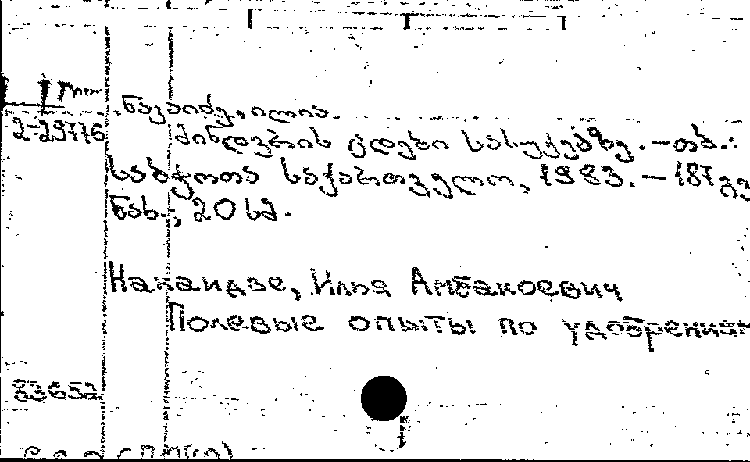 ნაკაიძე, ილია.
2-29776 მინდვრის ცდები სასუქებზე. — თბ.:
საბჭოთა საქართველო, 1983. — 187 გვ
ნახ.; 20 სმ.
Накаидзе, Илья Амбакоевич
Полевые опыты по удобрениям
83652